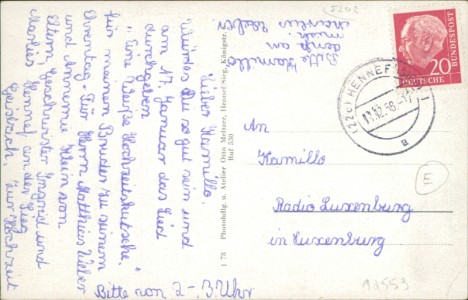 Lieber Kamillo.
Würdest Du so gut sein und
am 17. Januar das Lied
durchgeben
"Eine Weiße Hochzeitskutsche."
für meinen Bruder zu seinem
Ehrentag. Für Herrn Matthias
und Annemie Klein von
Eltern Geschwister Ingrid und
Marlies Himmel an der Sieg
zur Hochzeit
Bitte von 2-3 Uhr
Bitte Kamillo
denke an
mich
Photohdlg. u. Atelier Otto Melzer, Hennef-Sieg, Königstr.
Ruf 530
1 78
DEUTSCHE BUNDESPOST
20
(22c) HENNEF
11.12.58
a
An
Kamillo
Radio Luxemburg
in Luxemburg
E